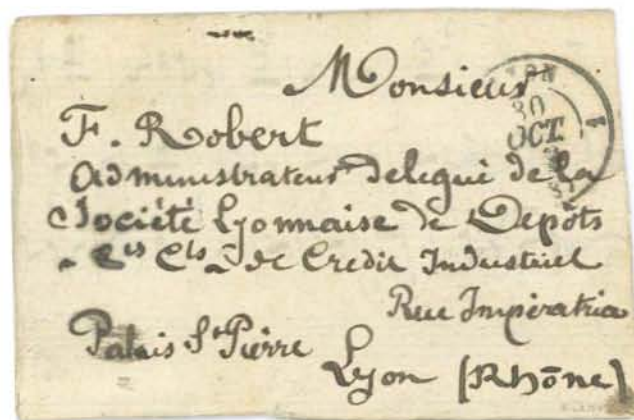 Monsieur
F. Robert
Administrateur delegué de la
Société Lyonnaise de Depôts
Cts de Credit Industriel
Rue Impératrice
Palais St Pierre
Lyon (Rhône)
30
OCT